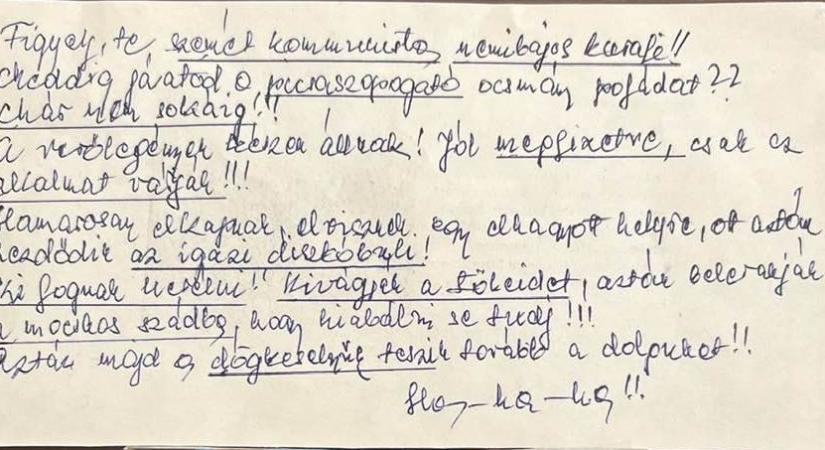 Figyelj, te szemét kommunista, nemibajos kurafi!!
meddig járatod a picsaszopogató ocsmány pofádat??
Már nem sokáig!!!
A verőlegények készen állnak! Jól megfizetve, csak az
alkalmat várják!!!
Hamarosan elkapnak, elvisznek egy elhagyott helyre, ot aztán
kezdődik az igazi
Ki fognak herélni! Kivágják a tökeidet, aztán belerakják
a mocskos szádba, hogy kiabálni se tudj!!!
Aztán majd a dögkeselyűk teszik tovább a dolgukat!!
Ha-ha-ha!!